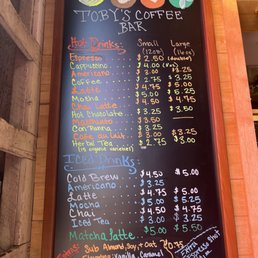 TOBY'S COFFEE
BAR
Hot Drinks: Small Large
(12oz) (16oz)
Espresso $2.50 (double)
Cappuccino $4.00
Americano $3.00 $3.25
Coffee $2.75 $3.25
Latte $4.75 $5.00
Mocha $4.50 $4.75
Chai Latte $4.75 $5.25
Hot Chocolate $3.25 $3.50
Macchiato $3.50
Con Panna $3.25
Café au lait $3.00 $3.25
Herbal Tea $2.75 $3.00
ICED Drinks:
Cold Brew $4.50 $5.00
Americano $3.25
Latte $4.75 $5.00
Mocha $4.75 $5.00
Chai $4.50 $5.25
Iced Tea $3.00 $3.25
Matcha Latte $5.00 $5.50
Sub Almond, Soy, + Oat $0.75
Vanilla, Caramel
Extra
Espresso Shot